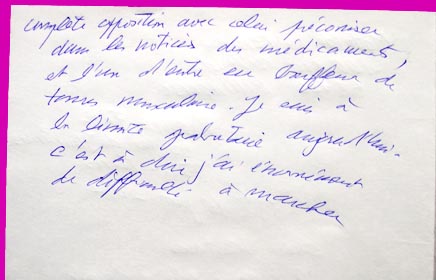 complète opposition avec celui préconisé
dans les notices des médicaments,
et l'un d'entre eux bouffeur de
tonus musculaire. Je suis à
la limite grabataire aujourd'hui
c'est à dire j'ai énormément
de difficulté à marcher